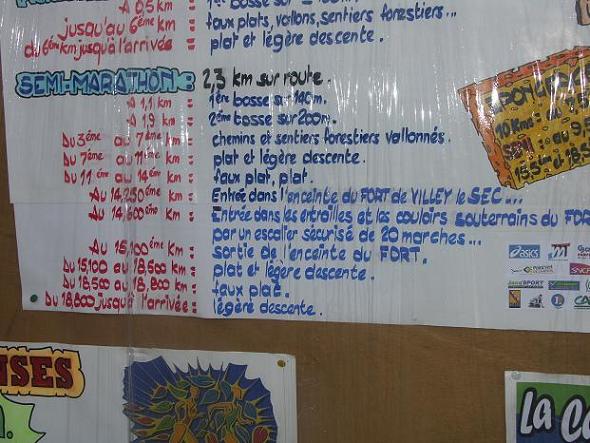 A 0,5 km : 1ère bosse sur
jusqu'au 6éme km : faux plats, vallons, sentiers forestiers...
du 6éme km jusqu'à l'arrivée : plat et légère descente.
SEMI-MARATHON : 2,3 km sur route.
A 1,1 km : 1ère bosse sur 140m.
A 1,9 km : 2ème bosse sur 200m.
Du 3éme au 7éme km : chemins et sentiers forestiers vallonnés.
Du 7éme au 11éme km : plat et légère descente.
Du 11éme au 14éme km : faux plat, plat.
Au 14,250éme km : Entrée dans l'enceinte du FORT de VILLEY le SEC...
Au 14,600éme km : Entrée dans les entrailles et les couloirs souterrains du FORT
par un escalier sécurisé de 20 marches...
Au 15,100éme km : sortie de l'enceinte du FORT.
Du 15,100 au 18,500 km : plat et légère descente.
Du 18,500 au 18,800 km : faux plat.
Du 18,800 jusqu'à l'arrivée : légère descente.
EPONGES
10 Kms : au
SEMI : au 9,
15,5
asics
SNCF
NSES
La Co